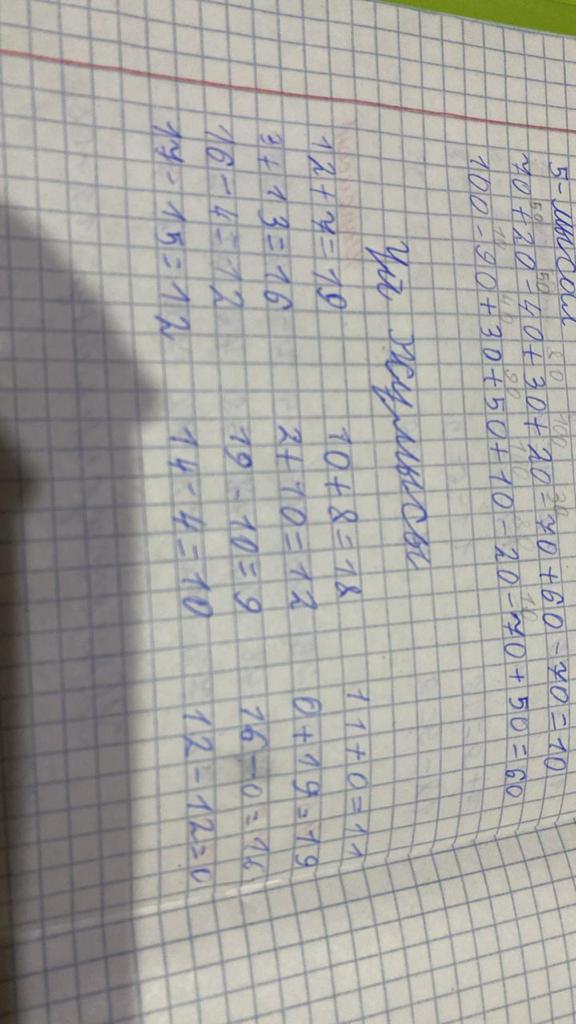 5-мысал
70+20-40+30+20-70+60-70=10
100-90+30+50+10-20-70+50=60
Үй жұмысы
12+7=19 10+8=18 11+0=11
3+13=16 2+10=12 0+19=19
16-4=12 19-10=9 16-0=16
17-15=12 14-4=10 12-12=0